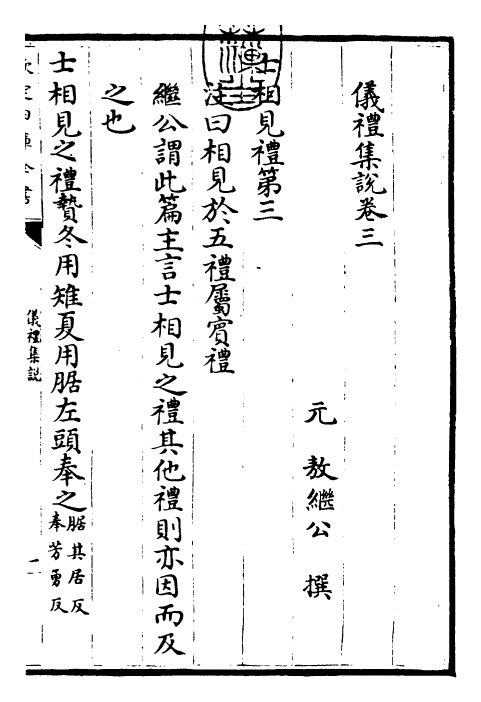 儀禮集說卷三
元 敖繼公 撰
士相見禮第三
注曰相見於五禮屬賓禮
繼公謂此篇主言士相見之禮其他禮則亦因而及
之也
士相見之禮贄冬用雉夏用腒左頭奉之腒其居反奉芳勇反
儀禮集說
一